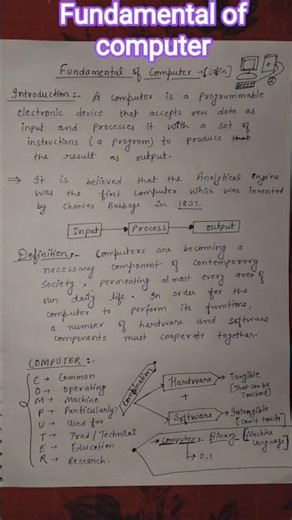 Fundamental of
computer
Fundamental of Computer →[Latin]
Introduction :- A Computer is a Programmable
electronic device that accepts raw data as
input and processes it with a set of
instructions (a program) to produce that
the result as output.
⇒ It is believed that the Analytical Engine
was the first computer which was invented
by Charles Babbage in 1837.
Input → Process → output
Definition :- Computers are becoming a
necessary component of contemporary
Society, permeating almost every area of
our daily life. In order for the
computer to perform its functions,
a number of hardware and software
components must cooperate together.
COMPUTER :-
C → Common
O → Operating
M → Machine
P → Particularly
U → Used for
T → Trad/Technical
E → Education
R → Research.
Combination
Hardware → Tangible
[That can be
Touched]
+
Software → Intangible
[Can't touch]
Computer :- Binary [Machine
Language]
→ 0,1